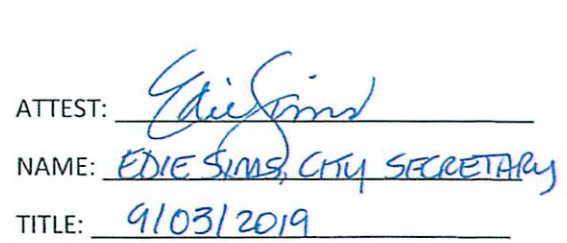 ATTEST: Edie Sims
NAME: EDIE SIMS, CITY SECRETARY
TITLE: 9/03/2019